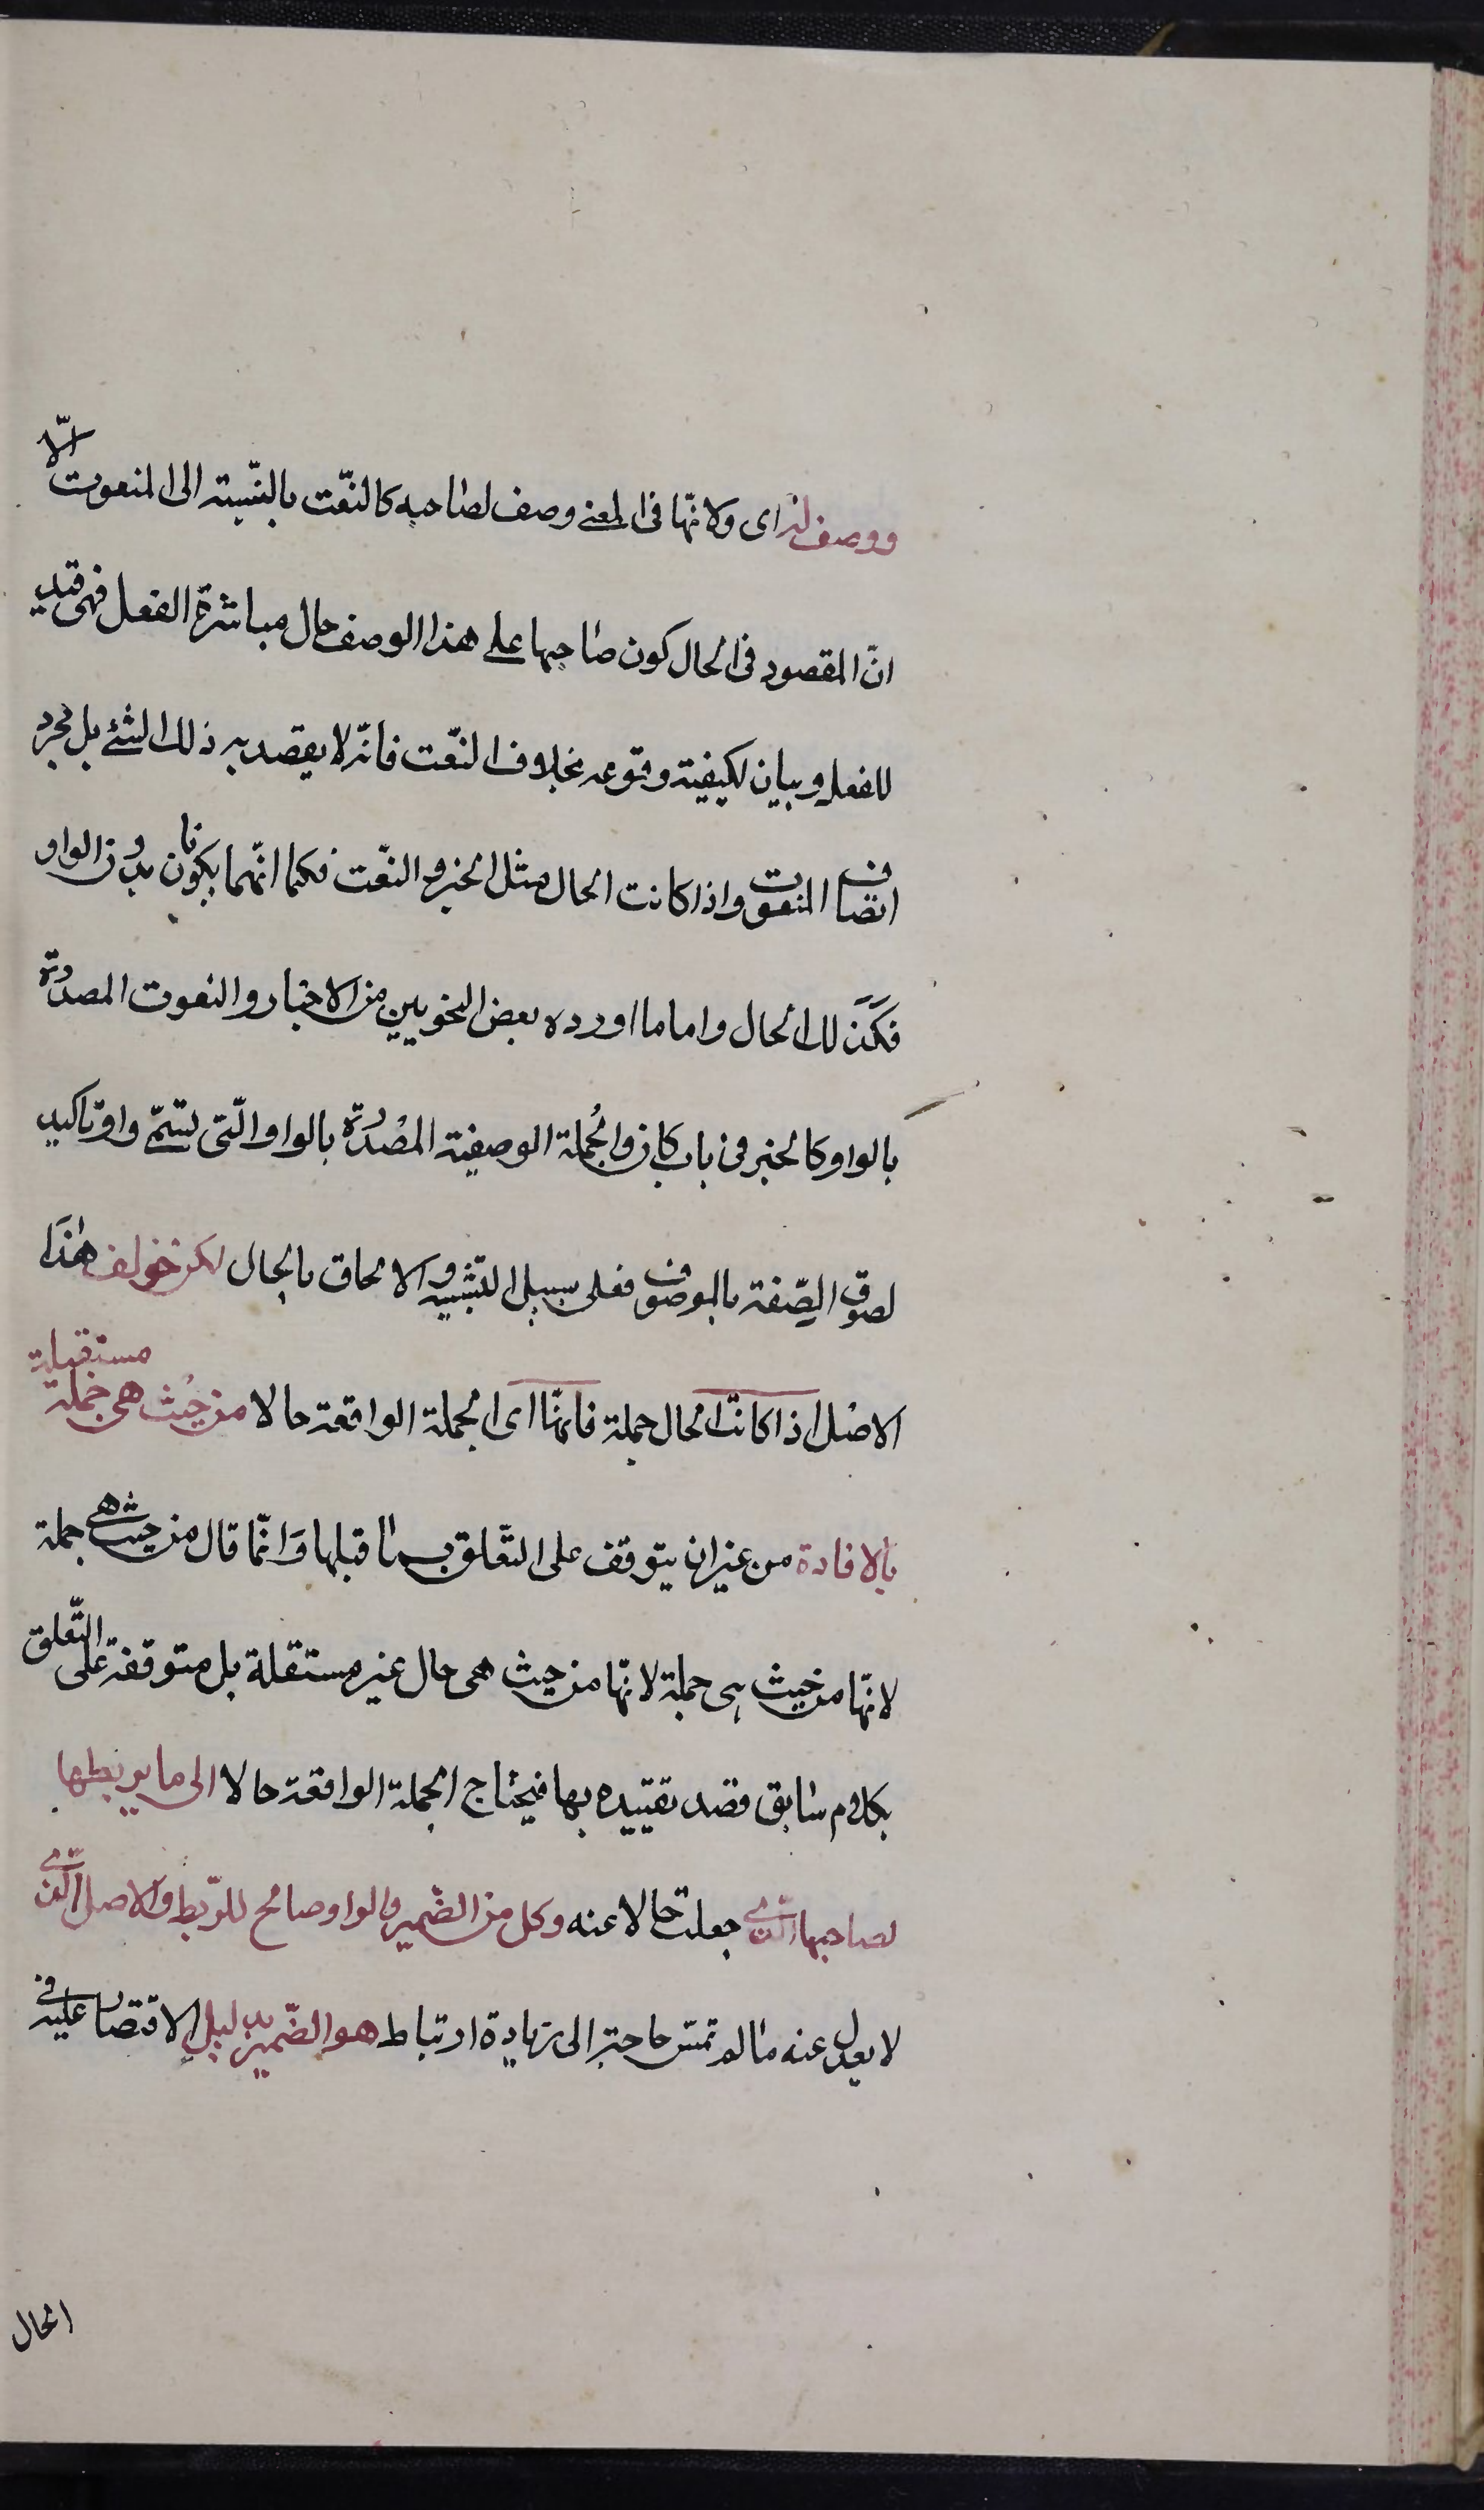 ووصف له اى ولانّها فى المعنى وصف لصاحبه كالنّعت بالنّسبة الى المنعوت الّا
انّ المقصود فى الحال كون صاحبها على هذا الوصف حال مباشرة الفعل فهى قيد
للفعل وبيان لكيفية وقوعه بخلاف النّعت فانّه لا يقصد به ذلك الشئ بل مجرد
اتصاف المنعوت واذا كانت الحال مثل الخبر والنّعت فكما انّهما يكونان بدون الواو
فكذلك الحال واما ما اورده بعض النحويين من الاخبار والنعوت المصدرة
بالواو كالخبر فى باب كان والجُملة الوصفية المصْدرة بالواو الّتى تسمّى واو تاكيد
لصوق الصّفة بالموصوف فعلى سبيل التشبيه والالحاق بالحال لكن خولف هٰذا
الاصل اذا كانت الحال جملة فانّها اى الجملة الواقعة حالا من حيث هى جملة مستقلة
بالافادة من غير ان يتوقف على التعّلق بما قبلها وَانّما قال من حيث هى جملة
لانّها من حيث هى جملة لانّها من حيث هى حال غير مستقلة بل متوقفة على التّعلق
بكلام سابق قصد تقييده بها فيحتاج الجملة الواقعة حالا الى ما يربطها
لصاحبها الّذى جعلت حالا عنه وكل من الضّمير والواو صالح للرّبط والاصل الّذى
لا يعدل عنه ما لم تمسّ حاجة الى زيادة ارتباط هو الضّمير بدليل الاقتصار عليه فى
الحال